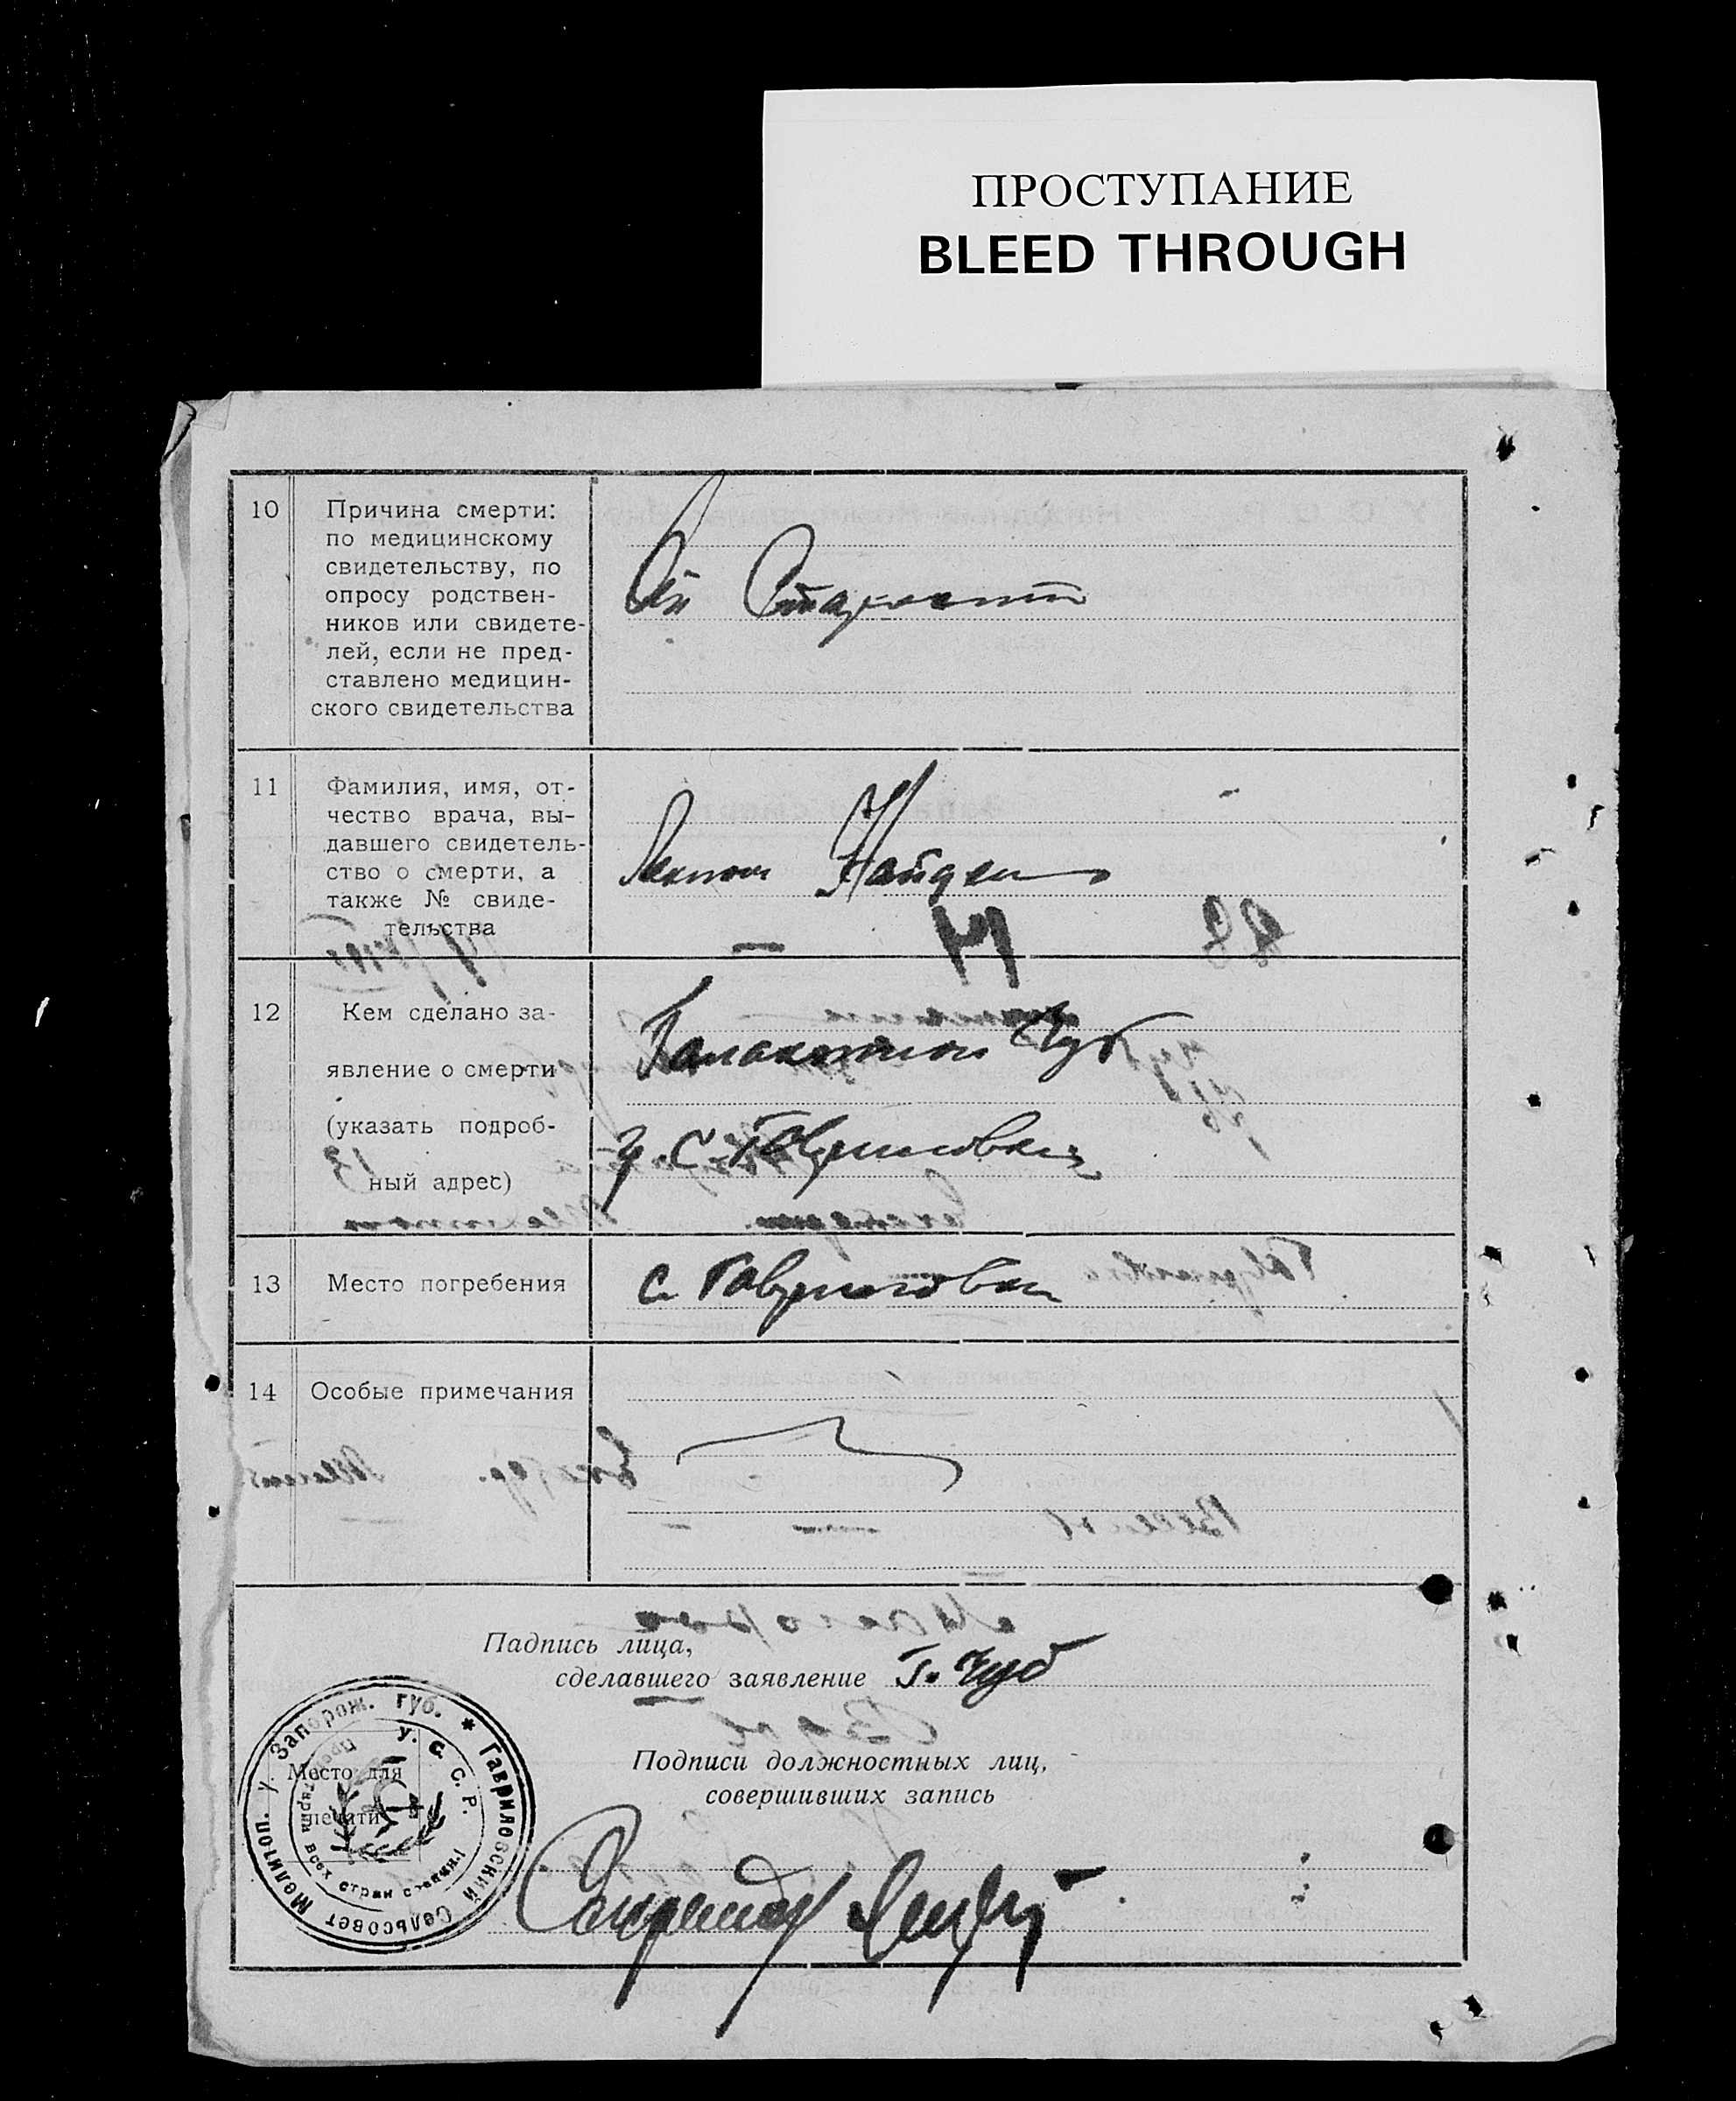 ПРОСТУПАНИЕ
BLEED THROUGH
10
Причина смерти:
по медицинскому
свидетельству, по
опросу родствен-
ников или свидете-
лей, если не пред-
ставлено медицин-
ского свидетельства
От Старости
11
Фамилия, имя, от-
чество врача, вы-
давшего свидетель-
ство о смерти, а
также № свиде-
тельства
12
Кем сделано за-
явление о смерти
(указать подроб-
ный адрес)
Чуб
с Гавриловка
13
Место погребения
с. Гавриловка
14
Особые примечания
Падпись лица,
сделавшего заявление Г. Чуб
Подписи должностных лиц,
совершивших запись
Место для
печати
Мелитоп. у. Запорож. губ. * Гавриловский Сельсовет
У. С. С. Р.
Секретарь